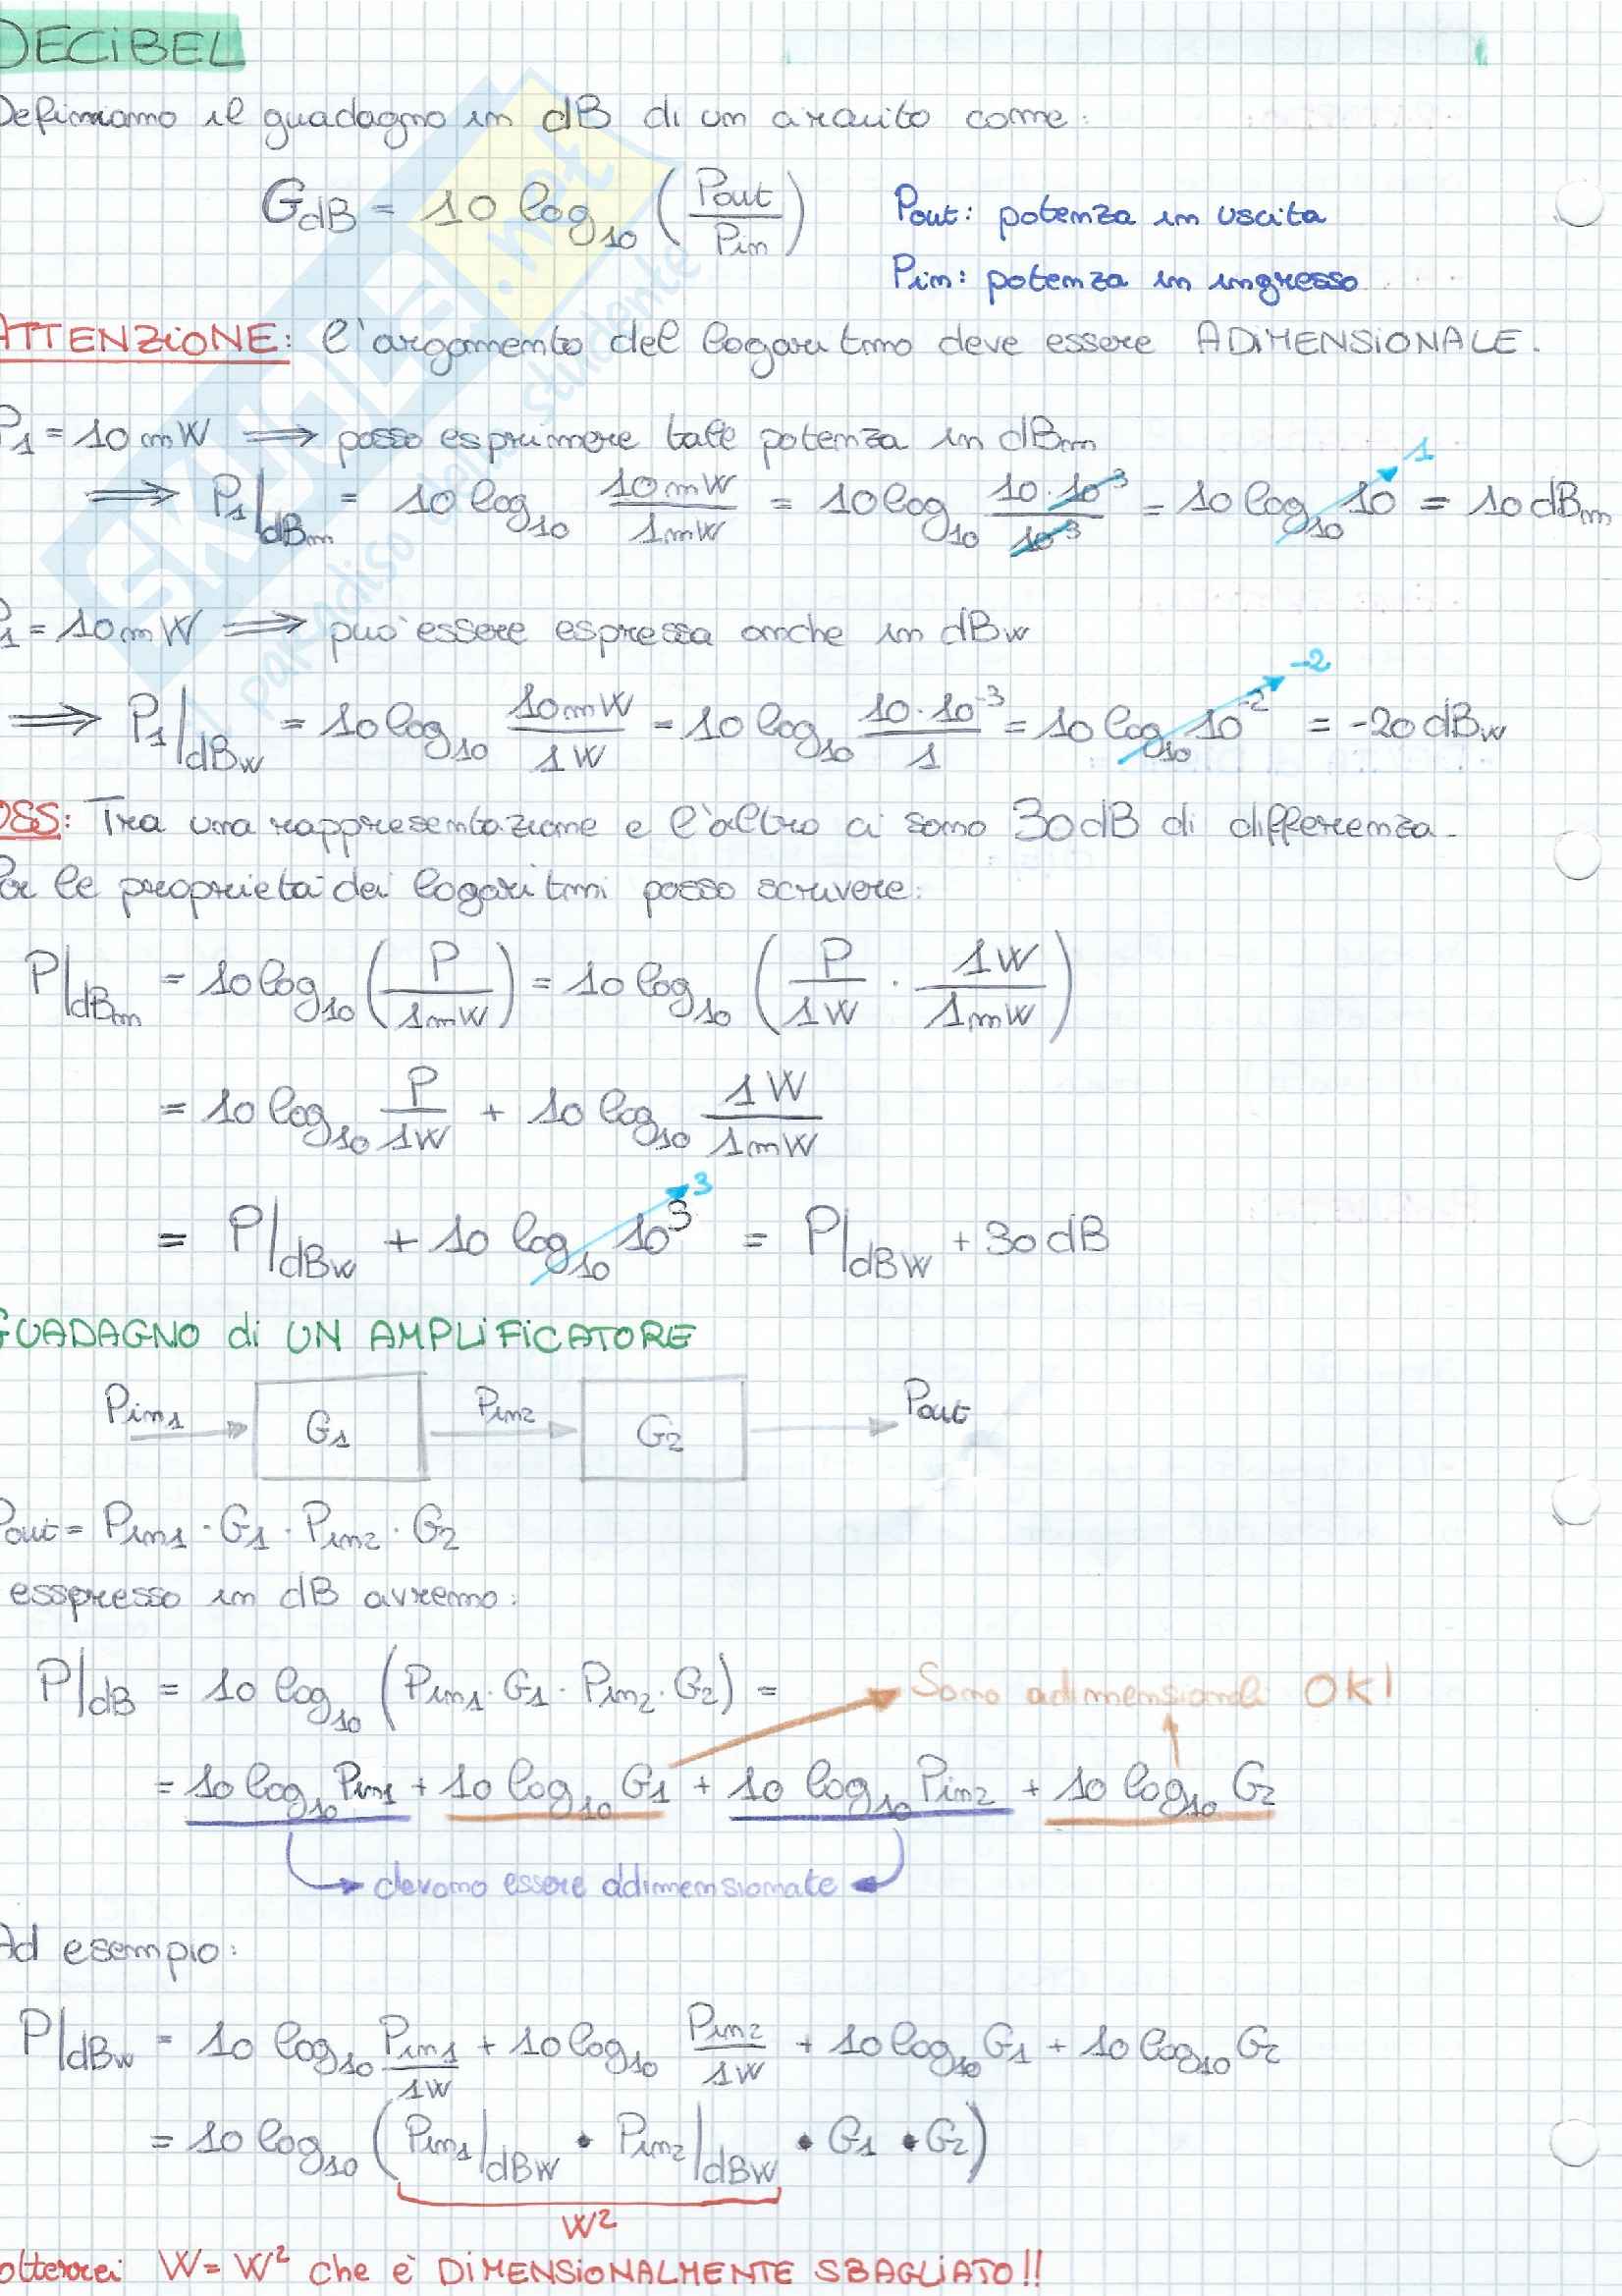 DECiBEL
Definiamo il guadagno in dB di un circuito come:
GdB = 10 log10 (Pout/Pin) Pout: potenza in uscita
Pin: potenza in ingresso
ATTENZiONE: l'argomento del logaritmo deve essere ADiMENSiONALE.
P1 = 10 mW ⟹ posso esprimere tale potenza in dBm
⟹ P1|dBm = 10 log10 10mW/1mW = 10 log10 10·10-3/10-3 = 10 log10 10 1 = 10 dBm
P1 = 10 mW ⟹ può essere espressa anche in dBw
⟹ P1|dBw = 10 log10 10mW/1W = 10 log10 10·10-3/1 = 10 log10 10-2 -2 = -20 dBw
OSS: Tra una rappresentazione e l'altro ci sono 30dB di differenza.
Per le proprietà dei logaritmi posso scrivere:
P|dBm = 10 log10 (P/1mW) = 10 log10 (P/1W · 1W/1mW)
= 10 log10 P/1W + 10 log10 1W/1mW
= P|dBw + 10 log10 10^3 3 = P|dBW + 30 dB
GUADAGNO di UN AMPLiFiCATORE
Pin1 G1 Pin2 G2 Pout
Pout = Pin1 · G1 · Pin2 · G2
esspresso in dB avremo:
P|dB = 10 log10 (Pin1 · G1 · Pin2 · G2) = Sono adimensionali OK!
= 10 log10 Pin1 + 10 log10 G1 + 10 log10 Pin2 + 10 log10 G2
devono essere adimensionate
Ad esempio:
P|dBw = 10 log10 Pin1/1W + 10 log10 Pin2/1W + 10 log10 G1 + 10 log10 G2
= 10 log10 (Pin1|dBW · Pin2|dBW · G1 · G2)
W²
otterrei W = W² che è DiMENSiONALMENTE SBAGLiATO!!
SKUOLA.net
paradiso dello studente